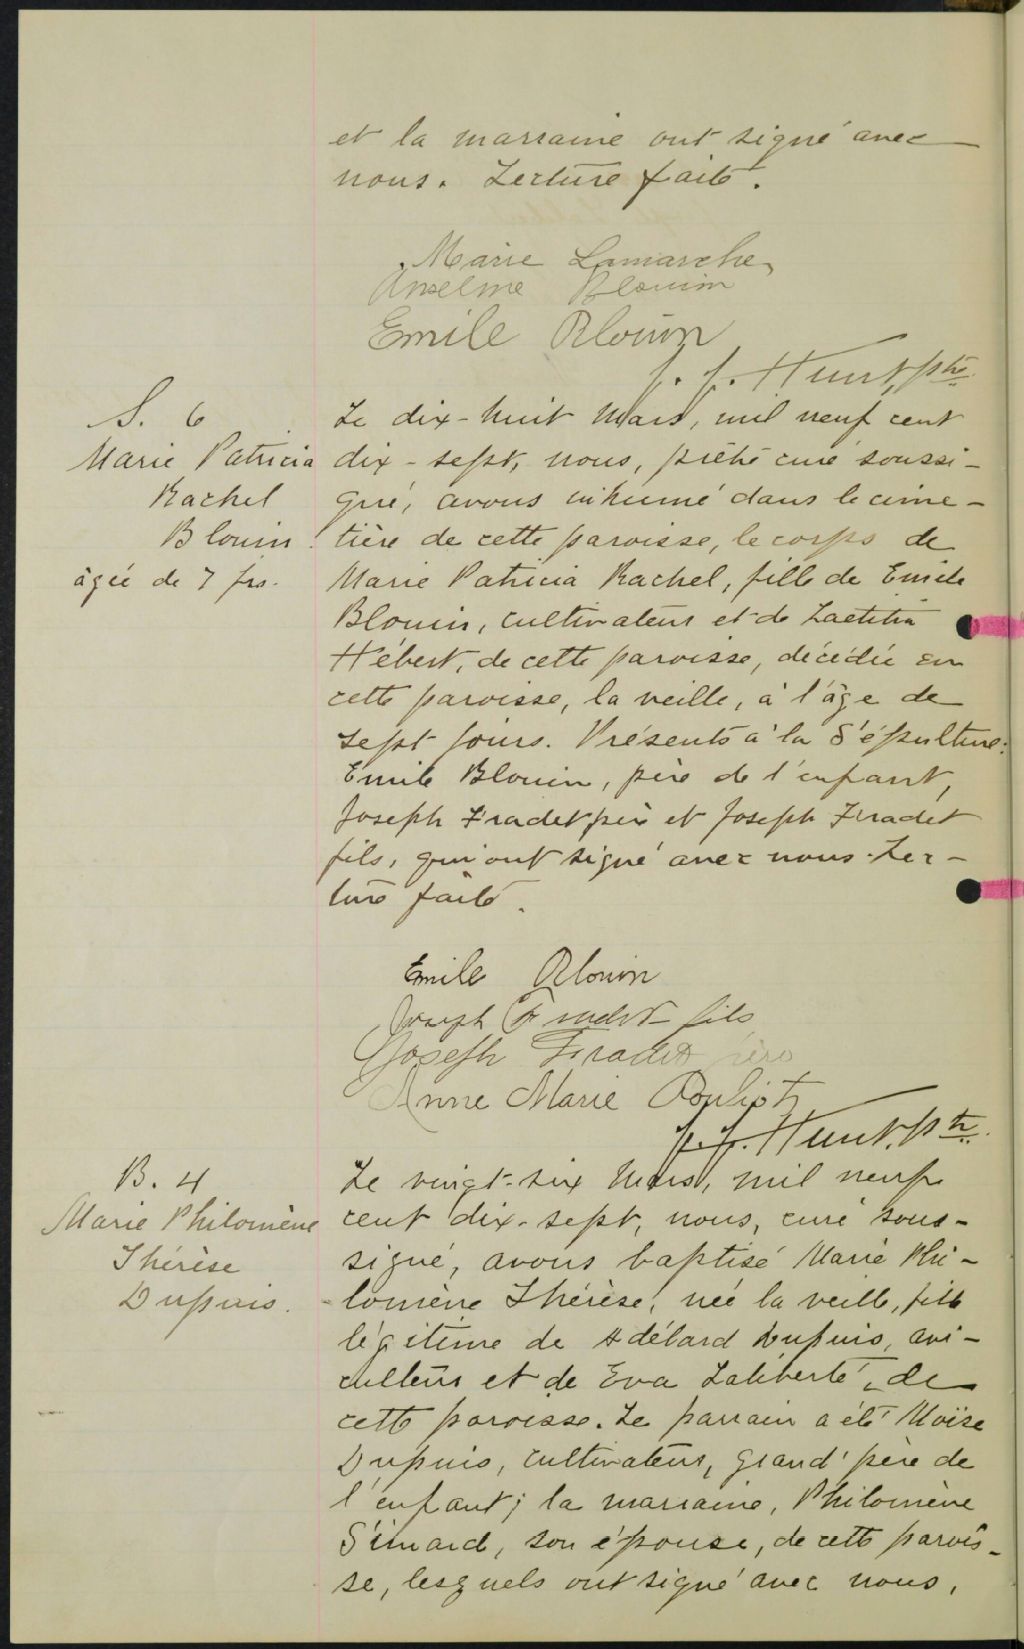 et la marraine ont signé avec
nous. Lecture faite.
Marie Lamarche
Anselme Blouin
Emile Blouin
J. J. Hunt, ptre
S. 6
Marie Patricia
Rachel
Blouin
âgée de 7 jrs.
Le dix-huit Mars, mil neuf cent
dix-sept, nous, prêtre curé soussi-
gné, avons inhumé dans le cime-
tière de cette paroisse, le corps de
Marie Patricia Rachel, fille de Emile
Blouin, cultivateur et de Laetitia
Hébert, de cette paroisse, décédée en
cette paroisse, la veille, à l'âge de
sept jours. Présents à la Sépulture:
Emile Blouin, père de l'enfant,
Joseph Fradet père et Joseph Fradet
fils, qui ont signé avec nous. Lec-
ture faite.
Emile Blouin
Joseph Fradet fils
Joseph Fradet père
Anne Marie Pouliot
J. J. Hunt, ptr
B. 4
Marie Philomène
Thérèse
Dupuis.
Le vingt-six Mars, mil neuf
cent dix-sept, nous, curé sous-
signé, avons baptisé Marie Phi-
lomène Thérèse, née la veille, fille
légitime de Adélard Dupuis, avi-
culteur et de Eva Laliberté, de
cette paroisse. Le parrain a été Moïse
Dupuis, cultivateur, grand'père de
l'enfant; la marraine, Philomène
Simard, son épouse, de cette parois-
se, lesquels ont signé avec nous,